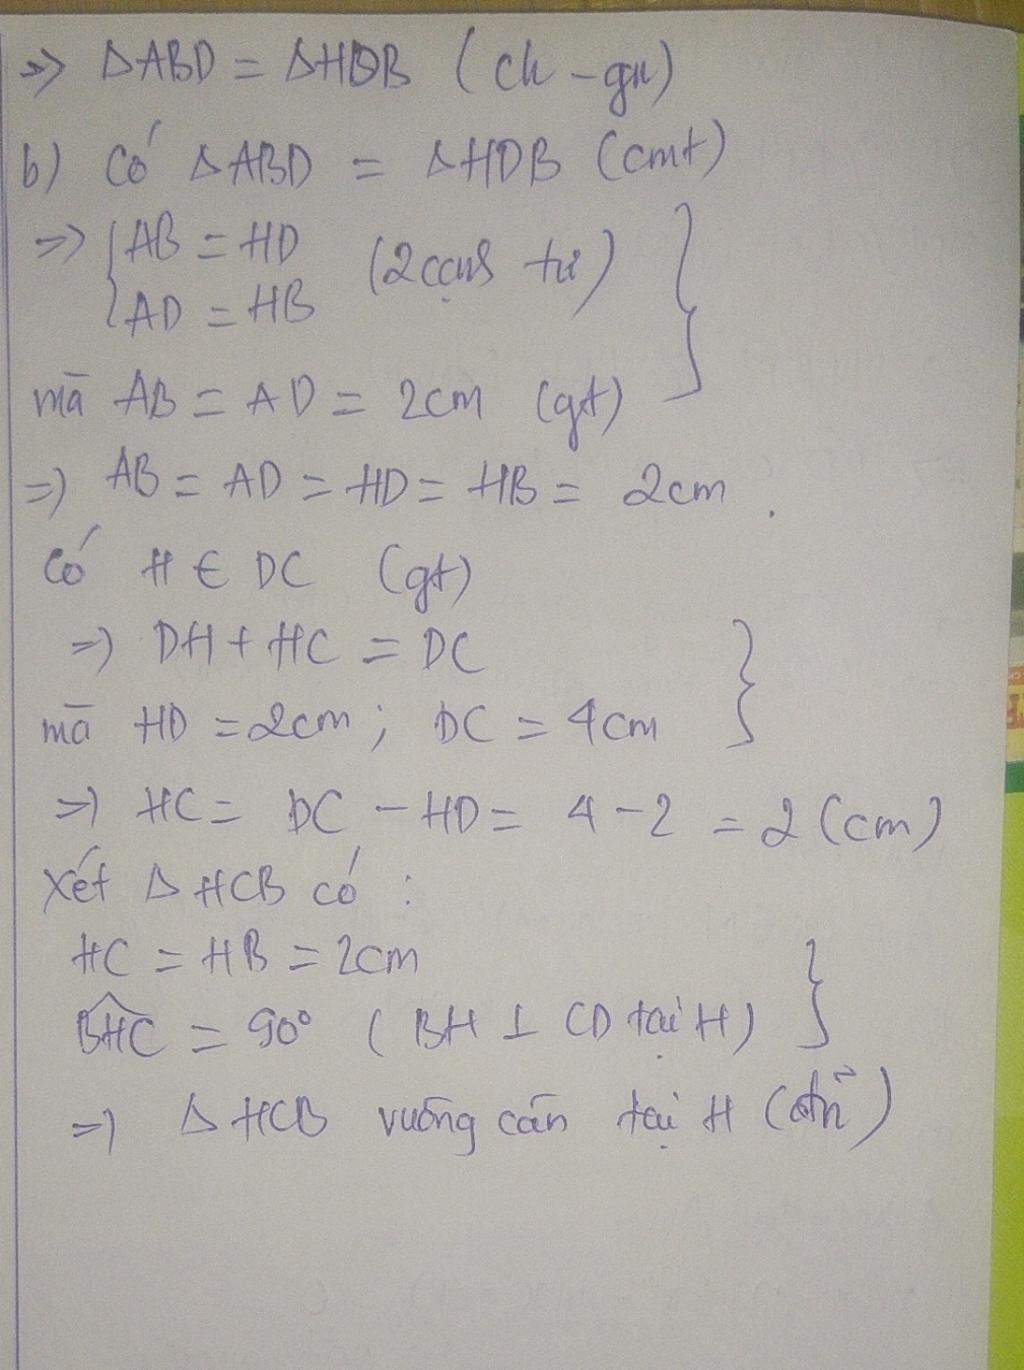 => ΔABD = ΔHDB (ch - gn)
b) Có ΔABD = ΔHDB (cmt)
=> { AB = HD
AD = HB (2 cạnh tư) }
mà AB = AD = 2cm (gt)
=> AB = AD = HD = HB = 2cm.
Có H ∈ DC (gt)
=> DH + HC = DC }
mà HD = 2cm ; DC = 4cm
=> HC = DC - HD = 4 - 2 = 2 (cm)
Xét Δ HCB có :
HC = HB = 2cm }
BHC = 90° ( BH ⊥ CD tại H)
=> Δ HCB vuông cân tại H (đn)